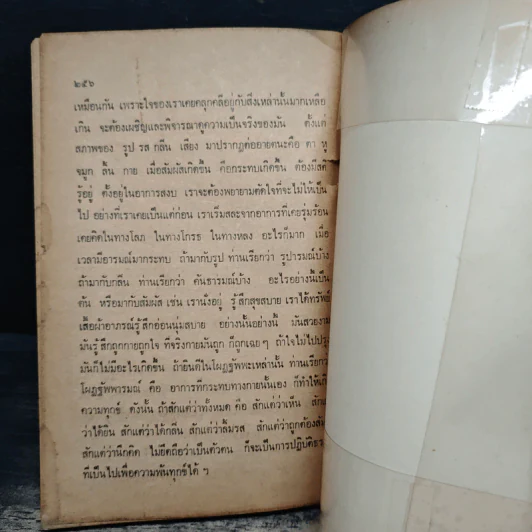 ๒๕๖
เหมือนกัน เพราะใจของเราเคยคลุกคลีอยู่กับสิ่งเหล่านั้นมากเหลือ
เกิน จะต้องเผชิญและพิจารณาดูความเป็นจริงของมัน ตั้งแต่
สภาพของ รูป รส กลิ่น เสียง มาปรากฏต่ออายตนะคือ ตา หู
จมูก ลิ้น กาย เมื่อสัมผัสเกิดขึ้น คือกระทบเกิดขึ้น ต้องมีสติ
รู้อยู่ ตั้งอยู่ในอาการสงบ เราจะต้องพยายามดัดใจที่จะไม่ให้เป็น
ไป อย่างที่เราเคยเป็นแต่ก่อน เราเริ่มสละจากอาการที่เคยรุ่มร้อน
เคยคิดในทางโลภ ในทางโกรธ ในทางหลง อะไรก็มาก เมื่อ
เวลามีอารมณ์มากระทบ ถ้ามากับรูป ท่านเรียกว่า รูปารมณ์บ้าง
ถ้ามากับกลิ่น ท่านเรียกว่า คันธารมณ์บ้าง อะไรอย่างนี้เป็น
ต้น หรือมากับสัมผัส เช่น เรานั่งอยู่ รู้สึกสุขสบาย เราได้
เสื้อผ้าอาภรณ์รู้สึกอ่อนนุ่มสบาย อย่างนั้นอย่างนี้ มันสวยงาม
มันรู้สึกถูกกายถูกใจ ที่จริงกายมันถูก ก็ถูกเฉย ๆ ถ้าใจไม่ไป
มันก็ไม่มีอะไรเกิดขึ้น ถ้ายินดีในโผฏฐัพพะเหล่านั้น ท่านเรียก
โผฏฐัพพารมณ์ คือ อาการที่กระทบทางกายนั้นเอง ก็ทำให้
ความทุกข์ ดังนั้น ถ้าสักแต่ว่าทั้งหมด คือ สักแต่ว่าเห็น
ว่าได้ยิน สักแต่ว่าได้กลิ่น สักแต่ว่าลิ้มรส สักแต่ว่าถูกต้อง
สักแต่ว่านึกคิด ไม่ยึดถือว่าเป็นตัวตน ก็จะเป็นการ
ที่เป็นไปเพื่อความพ้นทุกข์ได้ ๆ